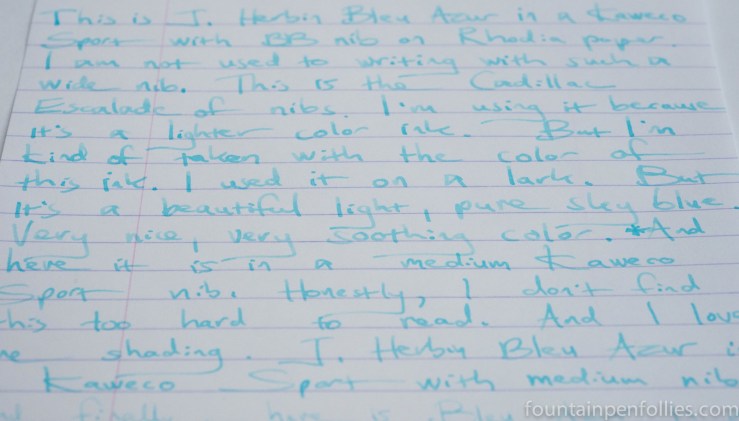 This is J. Herbin Bleu Azur in a Kaweco
Sport with BB nib on Rhodia paper.
I am not used to writing with such a
wide nib. This is the Cadillac
Escalade of nibs. I'm using it because
it's a lighter color ink. But I'm
kind of taken with the color of
this ink. I used it on a lark. But
it's a beautiful light, pure sky blue.
Very nice, very soothing color. *And
here it is in a medium Kaweco
Sport nib. Honestly, I don't find
this too hard to read. And I love
shading. J. Herbin Bleu Azur
Kaweco Sport with medium nib
finally here is Bleu
fountainpenfollies.com